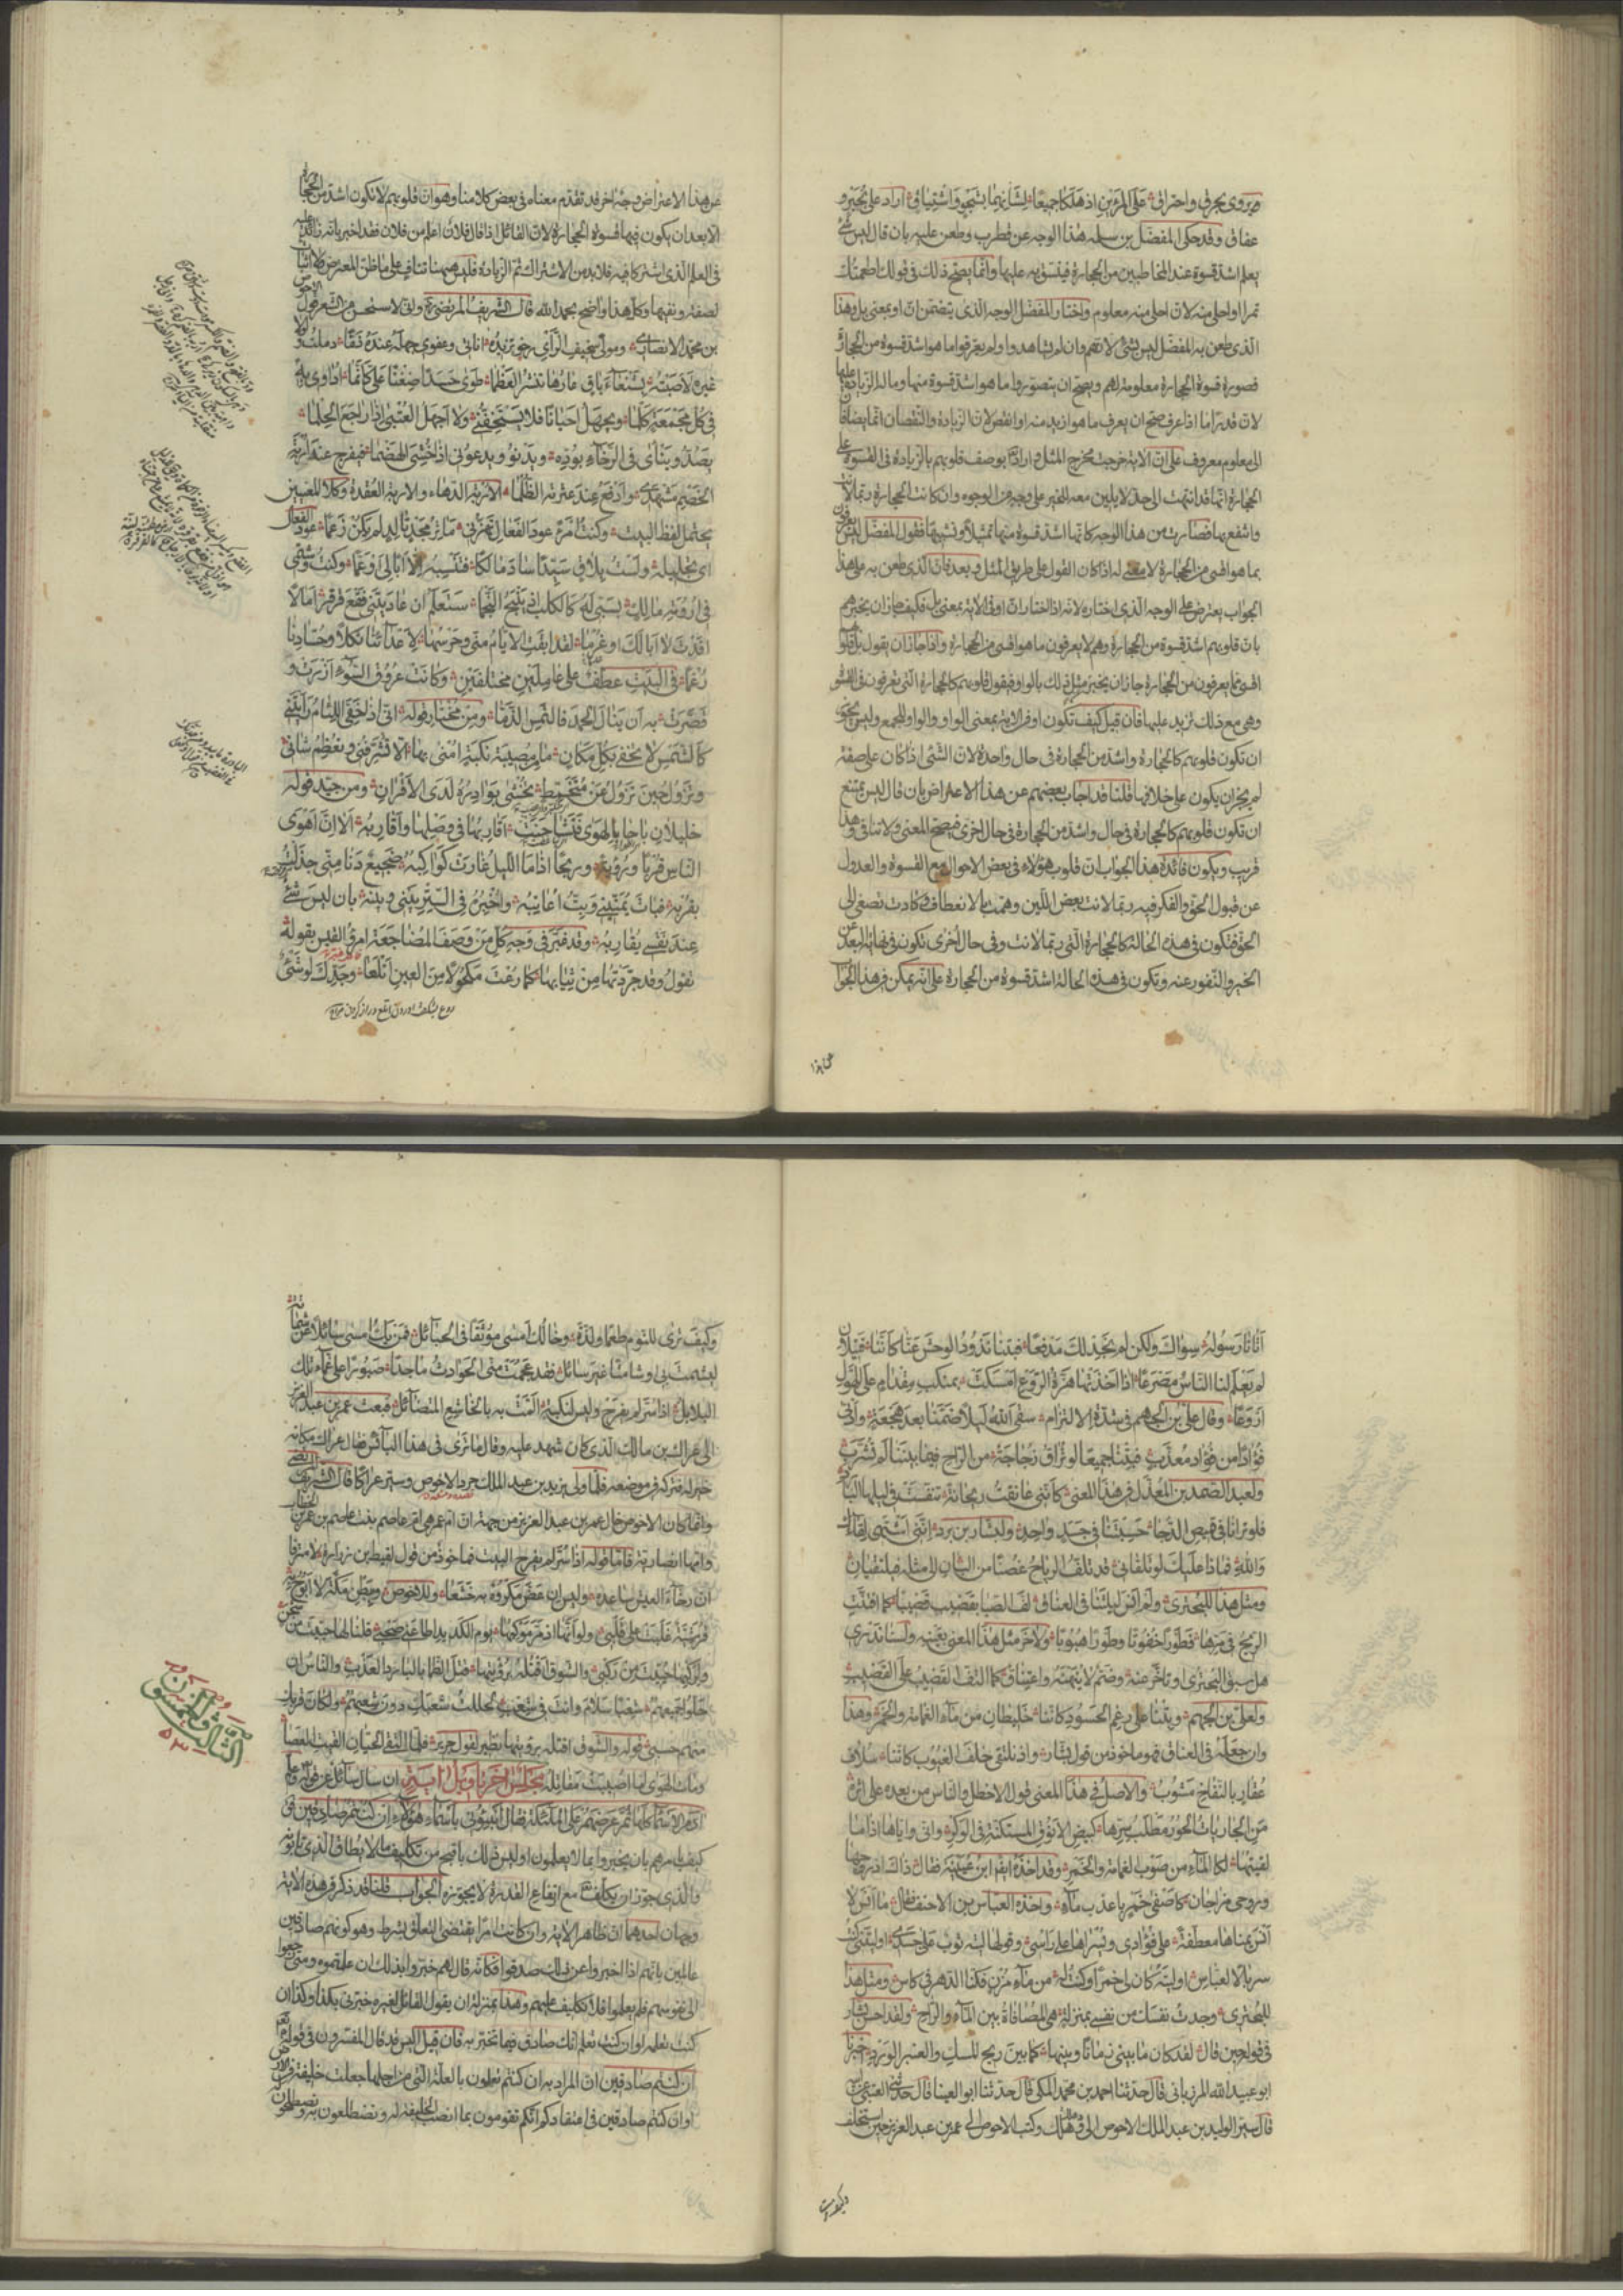 عفاق وقد حكى المفضل بن سلمه هذا الوجه عن قطرب وطعن عليه بان قال ليس شئ
يعلم اشد قسوة عند المخاطبين من الحجارة فينسق به عليها وانما يصح ذلك في قولك اطعمتك
تمرا او احلى منه لان احلى منه معلوم واختار المفضل الوجه الذى يتضمن ان او بمعنى بل وهذا
الذى طعن به المفضل ليس بشئ لانهم وان لم يشاهدوا ولم يعرفوا ما هو اشد قسوة من الحجارة
فصورة قسوة الحجارة معلومة لهم ويصح ان يتصوروا ما هو اشد قسوة منها وما له الزيادة عليها
لان قدرا ما اذا عرف صح ان يعرف ما هو ازيد منه او انقص لان الزيادة والنقصان انما يضافان
الى معلوم معروف على ان الاية خرجت مخرج المثل واراد تعالى بوصف قلوبهم بالزيادة في القسوة على
الحجارة انها قد انتهت الى حد لا يلين معه للخير على وجه من الوجوه وان كانت الحجارة ربما لانت
وانتفع بها فصارت من هذا الوجه كانها اشد قسوة منها تمثيلا وتشبيها فقول المفضل ليس يعرفون
بما هو اقسى من الحجارة لا معنى له اذا كان القول على طريق المثل وبعد فان الذى طعن به على هذا
الجواب يعترض على الوجه الذى اختاره لانه اذا اختار ان او في الاية بمعنى بل فكيف جاز ان يخبرهم
بان قلوبهم اشد قسوة من الحجارة وهم لا يعرفون ما هو اقسى من الحجارة واذا جاز ان يقول بل قلوبهم
اقسى مما يعرفون من الحجارة جاز ان يخبر مثل ذلك بالواو فيقول قلوبهم كالحجارة التى يعرفون في القسوة
وهى مع ذلك تزيد عليها فان قيل كيف تكون او في الاية بمعنى الواو والواو للجمع وليس يجوز
ان تكون قلوبهم كالحجارة واشد من الحجارة في حال واحدة لان الشئ اذا كان على صفة
لم يجز ان يكون على خلافها قلنا قد اجاب بعضهم عن هذا الاعتراض بان قال ليس يمتنع
ان تكون قلوبهم كالحجارة في حال واشد من الحجارة في حال اخرى فيصح المعنى ولا تنافى وهذا
قريب ويكون فائدة هذا الجواب ان قلوب هؤلاء في بعض الاحوال مع القسوة والعدول
عن قبول الحق والفكر فيه ربما لانت بعض اللين وهمت بالانعطاف وكادت تصغى الى
الحق فتكون في هذه الحالة كالحجارة التى ربما لانت وفي حال اخرى تكون في نهاية البعد عن
الخير والنفور عنه وتكون في هذه الحالة اشد قسوة من الحجارة على انه يمكن في هذا الجواب
عن هذا
عن هذا الاعتراض وجه اخر قد تقدم معناه في بعض كلامنا وهو ان قلوبهم لا تكون اشد من الحجارة
الا بعد ان يكون فيها قسوة الحجارة لان القائل اذا قال فلان اعلم من فلان فقد اخبر بانه زائد عليه
في العلم الذى اشتركا فيه فلا بد من الاشتراك ثم الزيادة فليس ههنا تناف على ما ظن المعترض ولا اثبات
لصفة ونفيها وكل هذا واضح بحمد الله قال الشريف المرتضى وانى لاستحسن من الشعر قول الاحوص
بن محمد الانصارى ومولى سخيف الراى رخو تزيده اناتى وعفوى جهله عنده ذما دملت ولولا
غيره لاصبته بشنعاء باق عارها تقر العظما طوى حسدا ضغنا على كانما اداوى به
في كل مجمعة كلما ويجهل احيانا فلا يستخفنى ولا اجهل العتبى اذا راجع الحلما
يصد وينأى في الرخاء بوده ويدنو ويدعونى اذا خشى الهضما فيفرج عنه اربة
الخصم مشهدى وادفع عنه عند عثرته الظلما الاربة الدهاء والاربة العقدة وكلا المعنيين
يحتمل لفظ البيت
في ارومة مالك بسبى له كالكلب اذ ينبح النجما ستعلم ان عاديتنى فقع قرقر امالا
افدت لا ابا لك او غرما لقد ابقت الايام منى وحرسها لاعدائنا ثكلا وحسادنا
رغما في البيت عطف على عاملين مختلفين وكانت عروق السوء ازرت و
قصرت به ان ينال الحمد فالتمس الذما ومن مختار قوله انى اذا خفى اللئام رايتنى
كالشمس لا تخفى بكل مكان ما من مصيبة نكبة امنى بها الا تشرفنى وتعظم شانى
وتزول حين تزول عن متخمط تخشى بوادره لدى الاقران ومن جيد قوله
خليلان باحا بالهوى فتشاحنت اقاربها في وصلها واقاربه الا ان اهوى
الناس قربا ورؤية وريحا اذا ما الليل غارت كواكبه ضجيع دنا منى جذلت
بقربه فبات يمنينى وبت اعاتبه واخبره في السر بينى وبينه بان ليس شئ
عند نفسى يقاربه وقد قيل في وجه كل من وصف المضاجعة امرؤ القيس بقوله
تقول وقد جردتها من ثيابها كما رعت مكحولا من العين اتلعا وجدك لو شئ
اتانا رسوله سواك ولكن لم نجد لك مدفعا فبتنا تذود الوحش عنا كاننا قتيلان
لم يعلم لنا الناس مصرعا اذا اخذتها هزة الروع امسكت بمنكب مقدام على الهول
اروعا وقال على بن الجهم في شدة الالتزام سقى الله ليلا ضمنا بعد هجعة وادنى
فؤادا من فؤاد معذب فبتنا جميعا لو تراق زجاجة من الراح فيما بيننا لم تسرب
ولعبد الصمد بن المعذل في هذا المعنى كاننى عانقت ريحانة تنفست في ليلها البارد
فلو ترانا في قميص الدجا حسبتنا في جسد واحد ولبشار بن برد اننى اشتهى لقاءك
والله فماذا عليك لو تلقانى قد تلف الرياح غصنا من البان الى مثله فيلتقيان
ومثل هذا للبحترى ولم انس ليلتنا في العناق لف الصبا بقضيب قضيبا كما افتنت
الريح في مرها فطورا خفوتا وطورا هبوبا ولاخر مثل هذا المعنى بعينه ولسنا ندرى
هل سبق البحترى او تاخر عنه وضم لا ينهنهه واعتناق كما التف القضيب على القضيب
ولعلى بن الجهم وبتنا على رغم الحسود كاننا خليطان من ماء الغمامة والخمر وهذا
وان جعله في العناق فهو ماخوذ من قول بشار واذ نلتقى خلف العيون كاننا سلاف
عقار بالنقاخ مشوب والاصل في هذا المعنى قول الاخطل والناس من بعده على اثره
من الجاريات الحور مطلب سرها كبيض الانوق المستكنة في الوكر وانى واياها اذا ما
لقيتها لكالماء من صوب الغمامة والخمر وقد اخذه ابن ابى عيينة فقال ذاك اذ روحها
وروحى مزاجان كاصفى خمر باعذب ماء واخذه العباس بن الاحنف فقال ما انس لا
انس يمناها معطفة على فؤادى ويسراها على راسى وقولها ليته ثوب على جسدى او ليتنى كنت
سربالا لعباس او ليته كان لى خمرا وكنت له من ماء مزن فكنا الدهر في كاس ومثل هذا
للبحترى وجدت نفسك من نفسى بمنزلة هى المصافاة بين الماء والراح ولقد احسن بشار
في قوله حين قال لقد كان ما بينى زمانا وبينها كما بين ريح المسك والعنبر الورد اخبرنا
ابو عبيد الله المرزبانى قال حدثنا احمد بن محمد المكى قال حدثنا ابو العينا قال حدثنى العتبى
قال سير الوليد بن عبد الملك الاحوص الى دهلك وكتب الاحوص الى عمر بن عبد العزيز حين استخلف
وكيف ترى
وكيف ترى للنوم طعما ولذة وخالك امسى موثقا في الحبائل فمن يك امسى سائلا عن شماتة
ليشمت بى او شامتا غير سائل فقد عجمت منى الحوادث ماجدا صبورا على غماء تلك
البلابل اذا سر لم يفرح وليس لنكبة المت به بالخاشع المتضائل فبعث عمر بن عبد العزيز
الى عراك بن مالك الذى كان شهد عليه وقال ما ترى في هذا البائس فقال عراك مكانه
خير له فتركه في موضعه فلما ولى يزيد بن عبد الملك جرد الاحوص وسير عراكا قال الشريف المرتضى
وانما كان الاحوص خال عمر بن عبد العزيز من جهة ان ام عمر هى ام عاصم بنت عاصم بن عمر بن الخطاب
وامها انصارية فاما قوله اذا سر لم يفرح البيت فماخوذ من قول لقيط بن زرارة لا مترفا
ان رخاء العيش ساعده وليس ان عض مكروه به خشعا وللاحوص وبطن مكة لا ابوح به
قرشية غلبت على قلبى ولو انها اذ مر موكبها يوم الكديد اطاعنى صحبى قلنا لها حييت من شجن
ولركبها حييت من ركب والشوق اقتله برؤيتها قتل الظما بالبارد العذب والناس ان
حلوا جميعهم شعبا سلام وانت في شعب لحللت شعبك دون شعبهم ولكان قربك
منهم حسبى قوله والشوق اقتله برؤيتها نظير لقول جرير فلما التقى الحيان القيت العصا
ومات الهوى لما اصيبت مقاتله مجلس اخر تاويل اية ان سال سائل عن قوله وعلم
ادم الاسماء كلها ثم عرضهم على الملئكة فقال انبئونى باسماء هؤلاء ان كنتم صادقين في
كيف يامرهم بان يخبروا بما لا يعلمون اوليس ذلك باقبح من تكليف ما لا يطاق الذى تابونه
والذى جوز ان يكلف مع ارتفاع القدرة لا يجوزه الجواب قلنا قد ذكر في هذه الاية
وجهان احدهما ان ظاهر الاية وان كانت امرا يقتضى التعلق بشرط وهو كونهم صادقين
عالمين بانهم اذا اخبروا عن ذلك صدقوا فكانه قال لهم خبروا بذلك ان علمتموه ومتى رجعوا
الى نفوسهم فلم يعلموا فلا تكليف عليهم وهذا بمنزلة ان يقول القائل لغيره خبرنى بكذا وكذا ان
كنت تعلمه او ان كنت تعلم انك صادق فيما تخبر به فان قيل اليس قد قال المفسرون في قوله تعالى
ان كنتم صادقين ان المراد به ان كنتم تعلمون بالعلة التى من اجلها جعلت خليفة في الارض
او ان كنتم صادقين في اعتقادكم انكم تقومون بما انصب الخليفة له وتضطلعون به وتصلحون له
الثالث والخمسون
٥٣